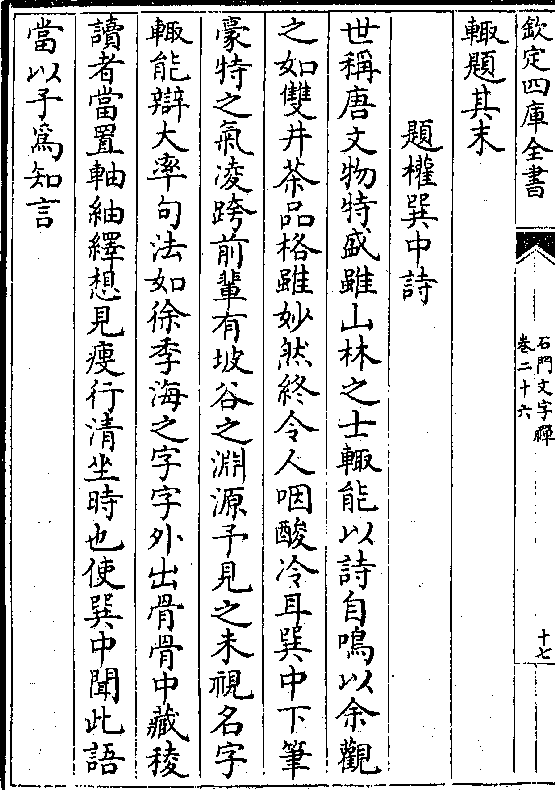 欽定四庫全書
石門文字禪
卷二十六
十七
輙題其末
題權巽中詩
世稱唐文物特盛雖山林之士輙能以詩自鳴以余觀
之如雙井茶品格雖妙然終令人咽酸冷耳巽中下筆
豪特之氣凌跨前輩有坡谷之淵源予見之未視名字
輙能辯大率句法如徐季海之字字外出骨骨中藏稜
讀者當置軸紬繹想見瘦行清坐時也使巽中聞此語
當以予爲知言